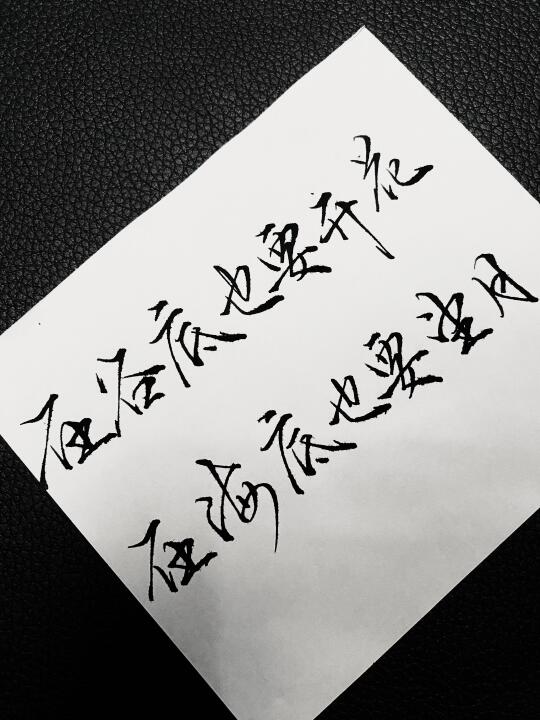 在谷底也要开花
在海底也要望月